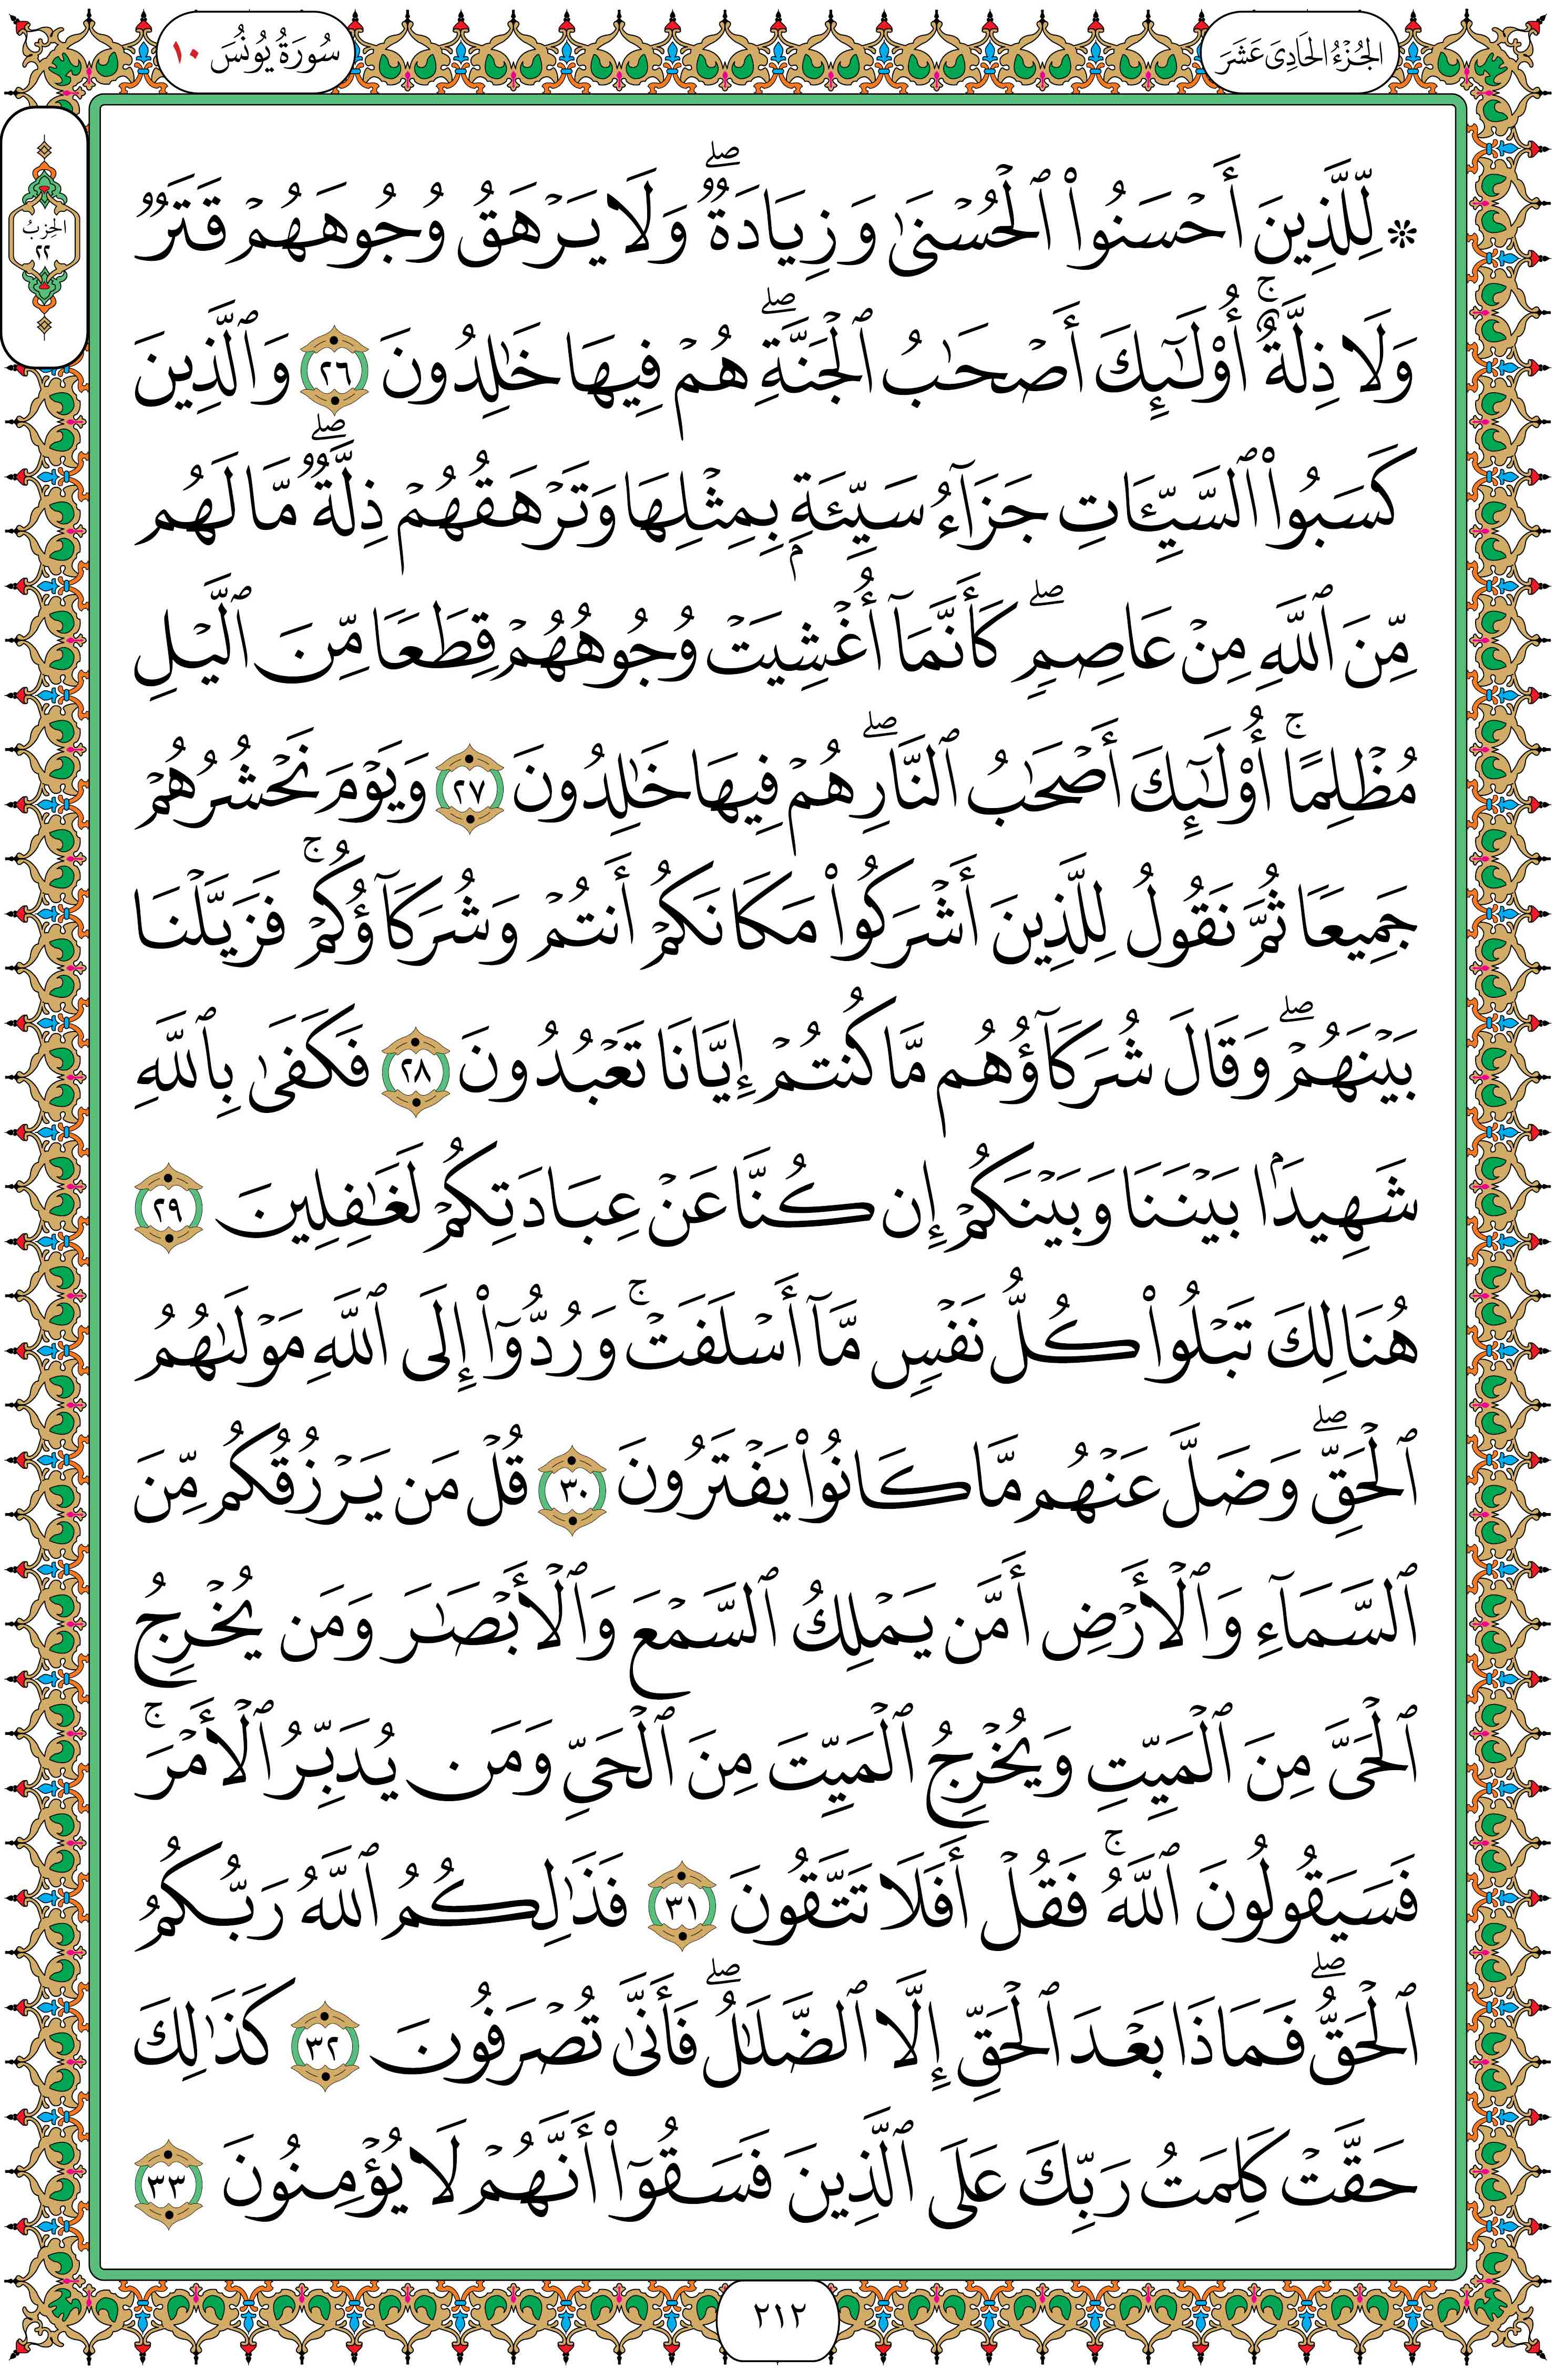 الجُزْءُ الحَادِىَ عَشَرَ
سُورَةُ يُونُسَ ١٠
الحِزبُ
٢٢
۞ لِّلَّذِينَ أَحْسَنُوا۟ ٱلْحُسْنَىٰ وَزِيَادَةٌۭ ۖ وَلَا يَرْهَقُ وُجُوهَهُمْ قَتَرٌۭ
وَلَا ذِلَّةٌ ۚ أُو۟لَـٰٓئِكَ أَصْحَـٰبُ ٱلْجَنَّةِ ۖ هُمْ فِيهَا خَـٰلِدُونَ ٢٦ وَٱلَّذِينَ
كَسَبُوا۟ ٱلسَّيِّـَٔاتِ جَزَآءُ سَيِّئَةٍۭ بِمِثْلِهَا وَتَرْهَقُهُمْ ذِلَّةٌۭ ۖ مَّا لَهُم
مِّنَ ٱللَّهِ مِنْ عَاصِمٍۢ ۖ كَأَنَّمَآ أُغْشِيَتْ وُجُوهُهُمْ قِطَعًۭا مِّنَ ٱلَّيْلِ
مُظْلِمًا ۚ أُو۟لَـٰٓئِكَ أَصْحَـٰبُ ٱلنَّارِ ۖ هُمْ فِيهَا خَـٰلِدُونَ ٢٧ وَيَوْمَ نَحْشُرُهُمْ
جَمِيعًۭا ثُمَّ نَقُولُ لِلَّذِينَ أَشْرَكُوا۟ مَكَانَكُمْ أَنتُمْ وَشُرَكَآؤُكُمْ ۚ فَزَيَّلْنَا
بَيْنَهُمْ ۖ وَقَالَ شُرَكَآؤُهُم مَّا كُنتُمْ إِيَّانَا تَعْبُدُونَ ٢٨ فَكَفَىٰ بِٱللَّهِ
شَهِيدًۢا بَيْنَنَا وَبَيْنَكُمْ إِن كُنَّا عَنْ عِبَادَتِكُمْ لَغَـٰفِلِينَ ٢٩
هُنَالِكَ تَبْلُوا۟ كُلُّ نَفْسٍۢ مَّآ أَسْلَفَتْ ۚ وَرُدُّوٓا۟ إِلَى ٱللَّهِ مَوْلَىٰهُمُ
ٱلْحَقِّ ۖ وَضَلَّ عَنْهُم مَّا كَانُوا۟ يَفْتَرُونَ ٣٠ قُلْ مَن يَرْزُقُكُم مِّنَ
ٱلسَّمَآءِ وَٱلْأَرْضِ أَمَّن يَمْلِكُ ٱلسَّمْعَ وَٱلْأَبْصَـٰرَ وَمَن يُخْرِجُ
ٱلْحَىَّ مِنَ ٱلْمَيِّتِ وَيُخْرِجُ ٱلْمَيِّتَ مِنَ ٱلْحَىِّ وَمَن يُدَبِّرُ ٱلْأَمْرَ ۚ
فَسَيَقُولُونَ ٱللَّهُ ۚ فَقُلْ أَفَلَا تَتَّقُونَ ٣١ فَذَٰلِكُمُ ٱللَّهُ رَبُّكُمُ
ٱلْحَقُّ ۖ فَمَاذَا بَعْدَ ٱلْحَقِّ إِلَّا ٱلضَّلَـٰلُ ۖ فَأَنَّىٰ تُصْرَفُونَ ٣٢ كَذَٰلِكَ
حَقَّتْ كَلِمَتُ رَبِّكَ عَلَى ٱلَّذِينَ فَسَقُوٓا۟ أَنَّهُمْ لَا يُؤْمِنُونَ ٣٣
٢١٢